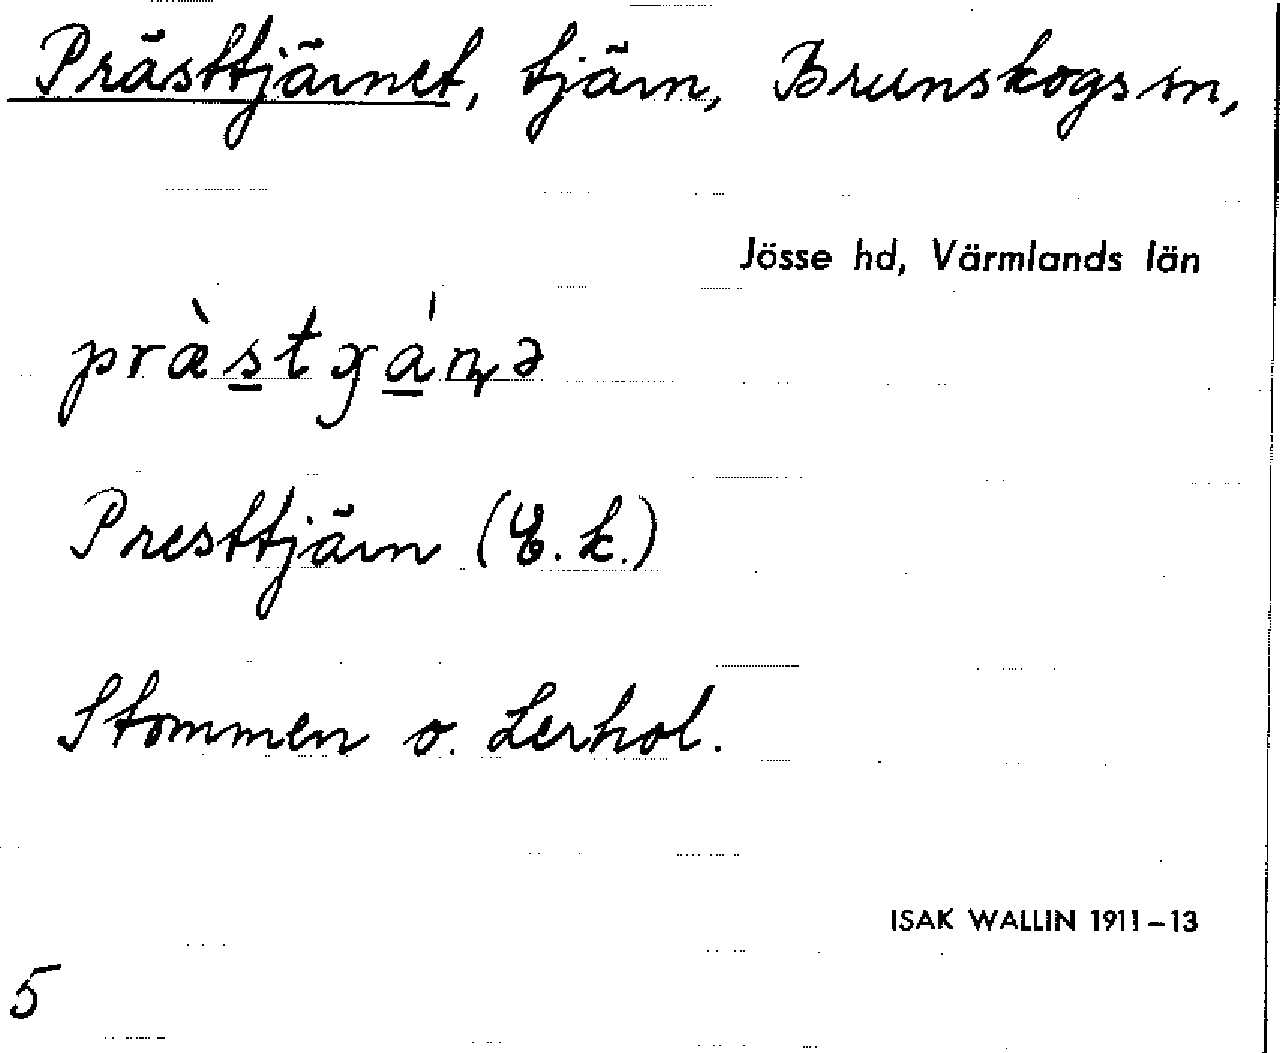 Prästtjärnet, tjärn, Brunskogs sn,
Jösse hd, Värmlands län
præ̀stgáɳə
Presttjärn (E.k.)
Stommen o. Lerhol.
ISAK WALLIN 1911–13
5